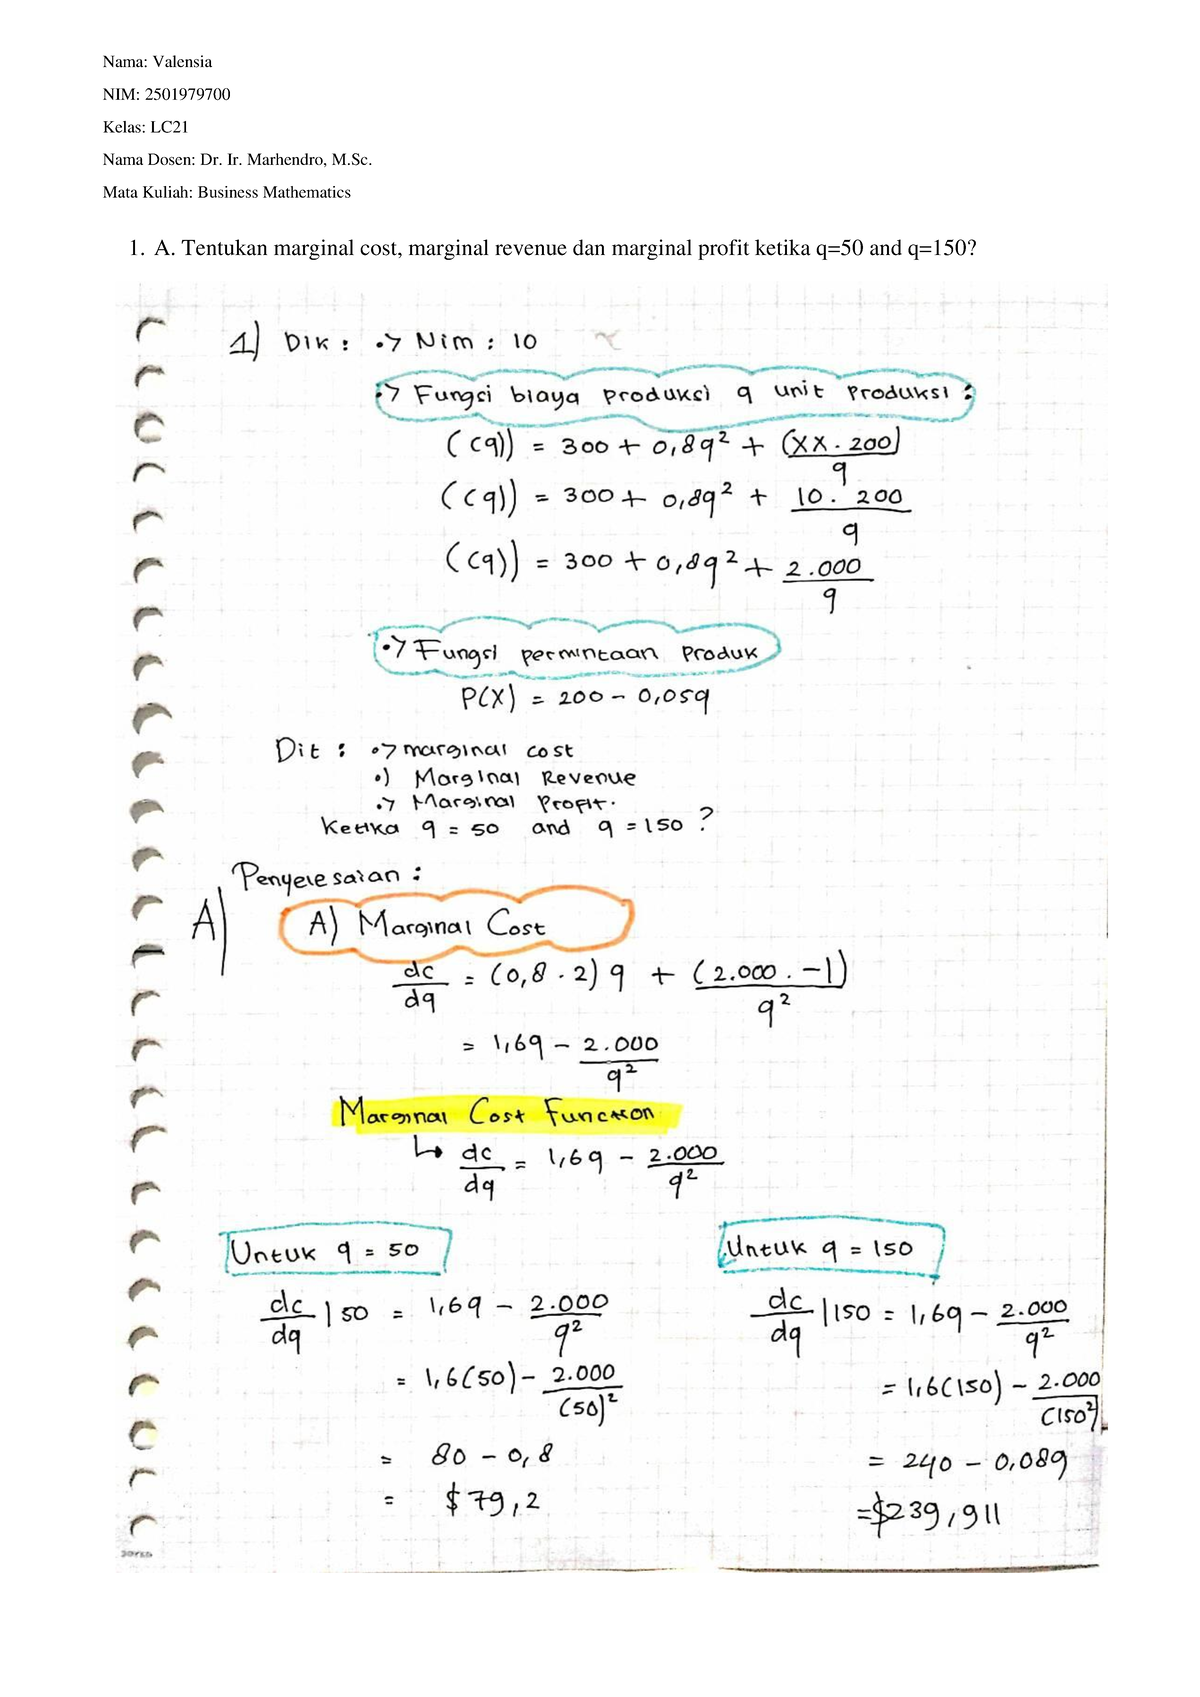 Nama: Valensia
NIM: 2501979700
Kelas: LC21
Nama Dosen: Dr. Ir. Marhendro, M.Sc.
Mata Kuliah: Business Mathematics
1. A. Tentukan marginal cost, marginal revenue dan marginal profit ketika q=50 and q=150?
1) Dik : •> Nim : 10
•> Fungsi biaya produksi q unit produksi :
(cq)) = 300 + 0,8q² + (XX . 200) / q
(cq)) = 300 + 0,8q² + 10 . 200 / q
(cq)) = 300 + 0,8q² + 2.000 / q
•> Fungsi permintaan produk
P(X) = 200 - 0,05q
Dit : •> marginal cost
•) Marginal Revenue
•> Marginal Profit.
Ketika q = 50 and q = 150 ?
Penyelesaian :
A) A) Marginal Cost
dc/dq = (0,8 . 2) q + (2.000 . -1) / q²
= 1,6q - 2.000 / q²
Marginal Cost Function
↳ dc/dq = 1,6q - 2.000 / q²
Untuk q = 50
dc/dq | 50 = 1,6q - 2.000 / q²
= 1,6(50) - 2.000 / (50)²
= 80 - 0,8
= $79,2
Untuk q = 150
dc/dq | 150 = 1,6q - 2.000 / q²
= 1,6(150) - 2.000 / (150²)
= 240 - 0,089
= $239,911